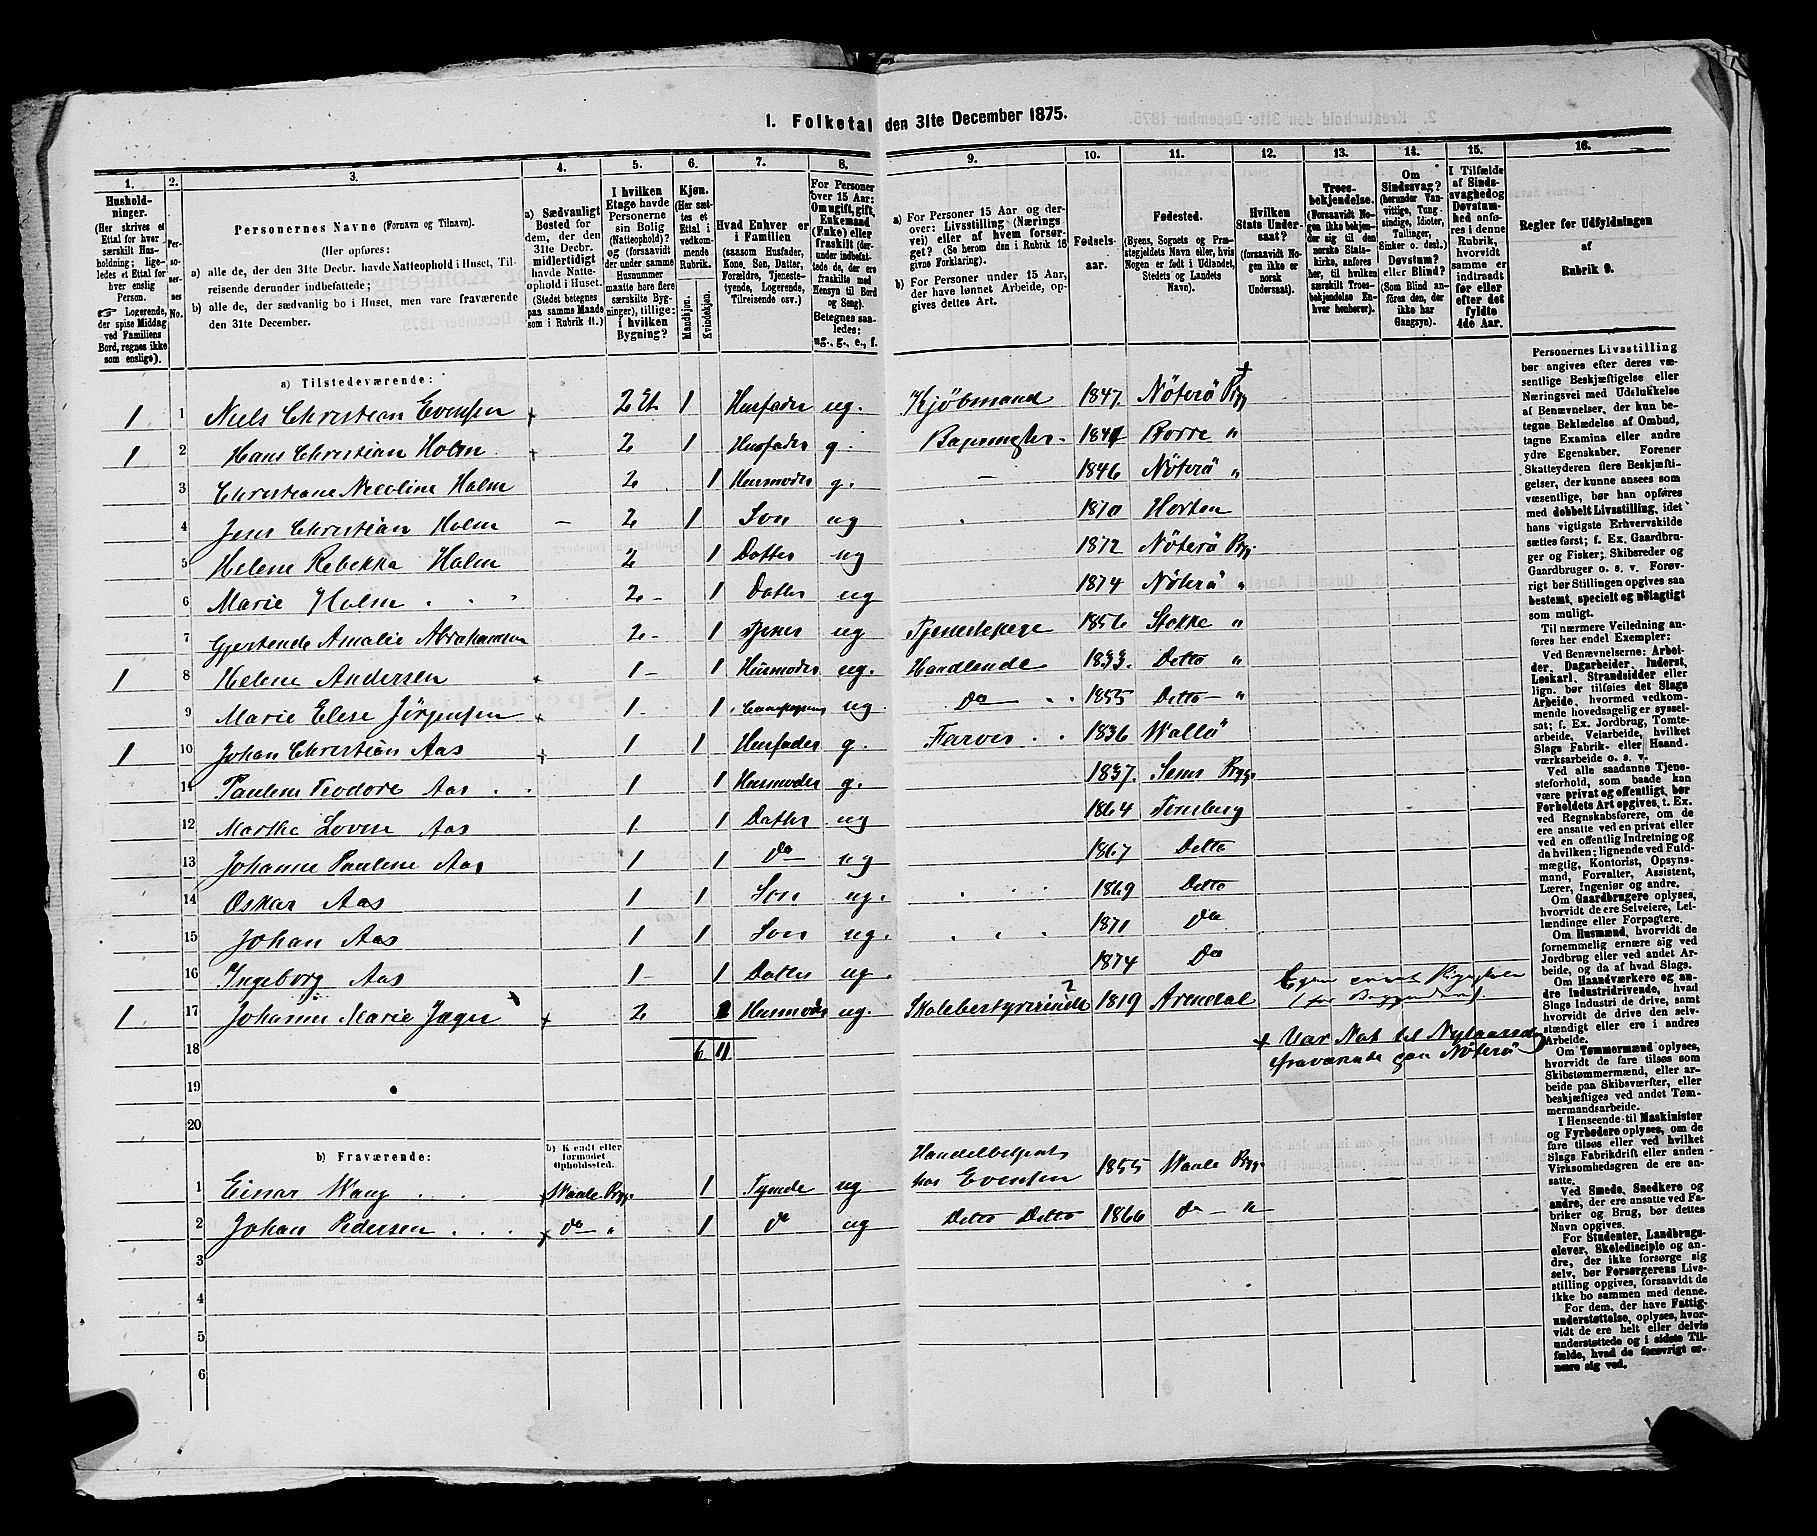 1. Folketal den 31te December 1875.
1. 2. 3. 4. 5. 6. 7. 8. 9. 10. 11. 12. 13. 14. 15. 16.
Hushold-
ninger.
(Her skrives et
Ettal for hver
særskilt Hus-
holdning; lige-
ledes et Ettal for
hver enslig
Person.
☞ Logerende,
der spise Middag
ved Familiens
Bord, regnes ikke
som enslige).
Per-
so-
ner-
nes
No.
Personernes Navne (Fornavn og Tilnavn).
(Her opføres:
a) alle de, der den 31te Decbr. havde Natteophold i Huset, Til-
reisende derunder indbefattede;
b) alle de, der sædvanlig bo i Huset, men vare fraværende
den 31te December.
a) Sædvanligt
Bosted for
dem, der den
31te Decbr.
midlertidigt
havde Natte-
ophold i Huset.
(Stedet betegnes
paa samme Maade
som i Rubrik 11.)
I hvilken
Etage havde
Personerne
sin Bolig
(Natteophold)?
og (forsaavidt
der under samme
Husnummer
maatte høre flere
særskilte Byg-
ninger), tillige:
i hvilken
Bygning?
Kjøn.
(Her sæt-
tes et
Ettal i
vedkom-
mende
Rubrik.
Mandkjøn.
Kvindekjøn.
Hvad Enhver er
i Familien
(saasom Husfader,
Kone, Søn, Datter,
Forældre, Tjeneste-
tyende, Logerende,
Tilreisende osv.)
For Personer
over 15 Aar:
Om ugift, gift,
Enkemand
(Enke) eller
fraskilt (der-
under indbefat-
tede de, der
ere fraskilte med
Hensyn til Bord
og Seng).
Betegnes saa-
ledes:
ug., g., e., f.
a) For Personer 15 Aar og der-
over: Livsstilling (Nærings-
vei) eller af hvem forsør-
get? (Se herom den i Rubrik 16
givne Forklaring).
b) For Personer under 15 Aar,
der have lønnet Arbeide, op-
gives dettes Art.
Fødsels-
aar.
Fødested.
(Byens, Sognets og Præ-
stegjeldets Navn eller, hvis
Nogen er født i Udlandet,
Stedets og Landets
Navn).
Hvilken
Stats Under-
saat?
(forsaavidt No-
gen ikke er
norsk
Undersaat).
Troes-
bekjendelse.
(Forsaavidt No-
gen ikke bekjen-
der sig til den
norske Stats-
kirke, anføres
her, til hvilken
særskilt Troes-
bekjendelse En-
hver henhører).
Om
Sindssvag?
(herunder Van-
vittige, Tung-
sindige, Idioter,
Tullinger,
Sinker o. desl.)
Døvstum?
eller Blind?
(Som Blind an-
føres den, der
ikke har
Gangsyn).
I Tilfælde
af Sinds-
svaghed og
Døvstum-
hed anfø-
res i denne
Rubrik,
hvorvidt
samme er
indtraadt
før eller
efter det
fyldte
4de Aar.
Regler for Udfyldningen
af
Rubrik 9.
a) Tilstedeværende:
1 1 Niels Christian Evensen + 2 Et. 1 Husfader ug. Kjøbmand 1847 Nöterö Prg +
1 2 Hans Christian Holm + 2 1 Husfader g. Borre "
3 Christiane Nicoline Holm 2 1 Husmoder g. — 1846 Nöterö "
4 Jens Christian Holm — 2 1 Son ug 1870 Horten
5 Helene Rebekka Holm 2 1 Datter ug 1872 Nöterö Prg.
6 Marie Holm 2 - 1 Datter ug 1874 Nöterö "
7 Gjertende Amalie Abrahamsen 2 - 1 tjener ug Tjenestepige 1856 Stokke "
1 8 Helene Andersen + 1 - 1 Husmoder ug. Handlende 1833. Detto "
9 Marie Elise Jörgensen + 1 - 1 ug. Do 1855 Detto "
1 10 Johan Christian Aas + 1 1 Husfader g. Farver 1836 Vallö
11 Pauline Teodore Aas 1 1 Husmoder g. 1837. Sems Prg.
12 Marthe Lovise Aas 1 1 Datter ug 1864 Tönsberg
13 Johanne Pauline Aas 1 1 Do ug 1867 Detto
14 Oskar Aas 1 1 Son ug. 1869 Detto
15 Johan Aas 1 1 Son ug. 1871 Do
16 Ingeborg Aas 1 - 1 Datter ug. 1874 Do
1 17 Johanne Marie Jæger + 2 1 Husmoder ug. Skolebestyrerinde ? 1819 Arendal
18 6 11
+ Var Nat til Nytaarsdag
fraværende paa Nöterö
19
20
b) Fraværende:
b) Kjendt eller
formodet
Opholdssted.
1 Einar Wang + Vaale Prg. 1 Tyende ug Handelsbetjent
hos Evensen 1855 Vaale Prg.
2 Johan Pedersen + do " 1 do ug Detto Detto 1866 do - "
3
4
5
6
Personernes Livsstilling
bør angives efter deres væ-
sentlige Beskjæftigelse eller
Næringsvei med Udelukkelse
af Benævnelser, der kun be-
tegne Beklædelse af Ombud,
tagne Examina eller andre
ydre Egenskaber. Forener
Skatteyderen flere Beskjæfti-
gelser, der kunne ansees som
væsentlige, bør han opføres
med dobbelt Livsstilling, idet
hans vigtigste Erhvervskilde
sættes først; f. Ex. Gaardbru-
ger og Fisker; Skibsreder og
Gaardbruger o. s. v. Forøv-
rigt bør Stillingen opgives saa
bestemt, specielt og nöiagtigt
som muligt.
Til nærmere Veiledning an-
føres her endel Exempler:
Ved Benævnelserne: Arbei-
der, Dagarbeider, Inderst,
Løskarl, Strandsidder eller
lign. bør tilføies det Slags
Arbeide, hvormed vedkom-
mende hovedsagelig er syssel-
sat; f. Ex. Jordbrug, Tomte-
arbeide, Veiarbeide, hvilket
Slags Fabrik- eller Haand-
værksarbeide o. s. v.
Ved alle saadanne Tjene-
steforhold, som baade kan
være privat og offentligt, bør
Forholdets Art opgives, t. Ex.
ved Regnskabsførere, om de
ere ansatte ved en privat eller
ved en offentlig Indretning og
da hvilken; lignende ved Fuld-
mægtig, Kontorist, Opsyns-
mand, Forvalter, Assistent,
Lærer, Ingeniør og andre.
Om Gaardbrugere oplyses,
hvorvidt de ere Selveiere, Lei-
lændinge eller Forpagtere.
Om Husmænd, hvorvidt de
fornemmelig ernære sig ved
Jordbrug eller ved andet Ar-
beide, og da af hvad Slags.
Om Haandværkere og an-
dre Industridrivende, hvad
Slags Industri de drive, samt
hvorvidt de drive den selv-
stændigt eller ere i andres
Arbeide.
Om Tømmermænd oplyses,
hvorvidt de fare tilsøs som
Skibstømmermænd, eller ar-
beide paa Skibsværfter, eller
beskjæftiges ved andet Tøm-
mermandsarbeide.
I Henseende til Maskinister
og Fyrbødere oplyses, om de
fare tilsøs eller ved hvilket
Slags Fabrikdrift eller anden
Virksomhedsgren de ere an-
satte.
Ved Smede, Snedkere og
andre, der ere ansatte ved Fa-
briker og Brug, bør dettes
Navn opgives.
For Studenter, Landbrugs-
elever, Skoledisciple og an-
dre, der ikke forsørge sig
selv, bør Forsørgerens Livs-
stilling opgives, forsaavidt de
ikke bo sammen med denne.
For dem, der have Fattig-
understøttelse, oplyses, hvor-
vidt de ere helt eller delvis
understøttede og i sidste Til-
fælde, hvad de forøvrigt er-
nære sig ved.